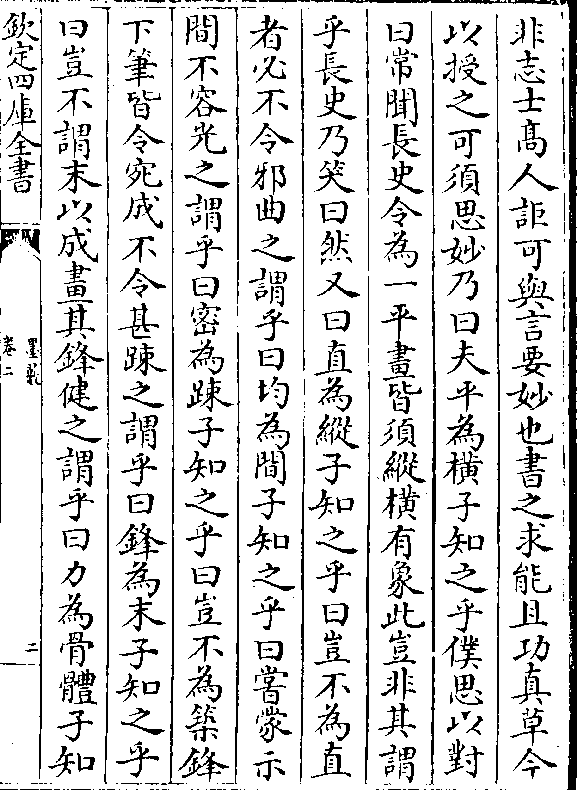 非志士髙人詎可與言要妙也書之求能且功真草今
以授之可須思妙乃曰夫平為橫子知之乎僕思以對
曰常聞長史令為一平畫皆須縱橫有象此豈非其謂
乎長史乃笑曰然又曰直為縱子知之乎曰豈不為直
者必不令邪曲之謂乎曰均為間子知之乎曰嘗蒙示
間不容光之謂乎曰密為踈子知之乎曰豈不為築鋒
下筆皆令宛成不令甚踈之謂乎曰鋒為末子知之乎
曰豈不謂末以成畫其鋒健之謂乎曰力為骨體子知
欽定四庫全書
墨藪
卷二
二